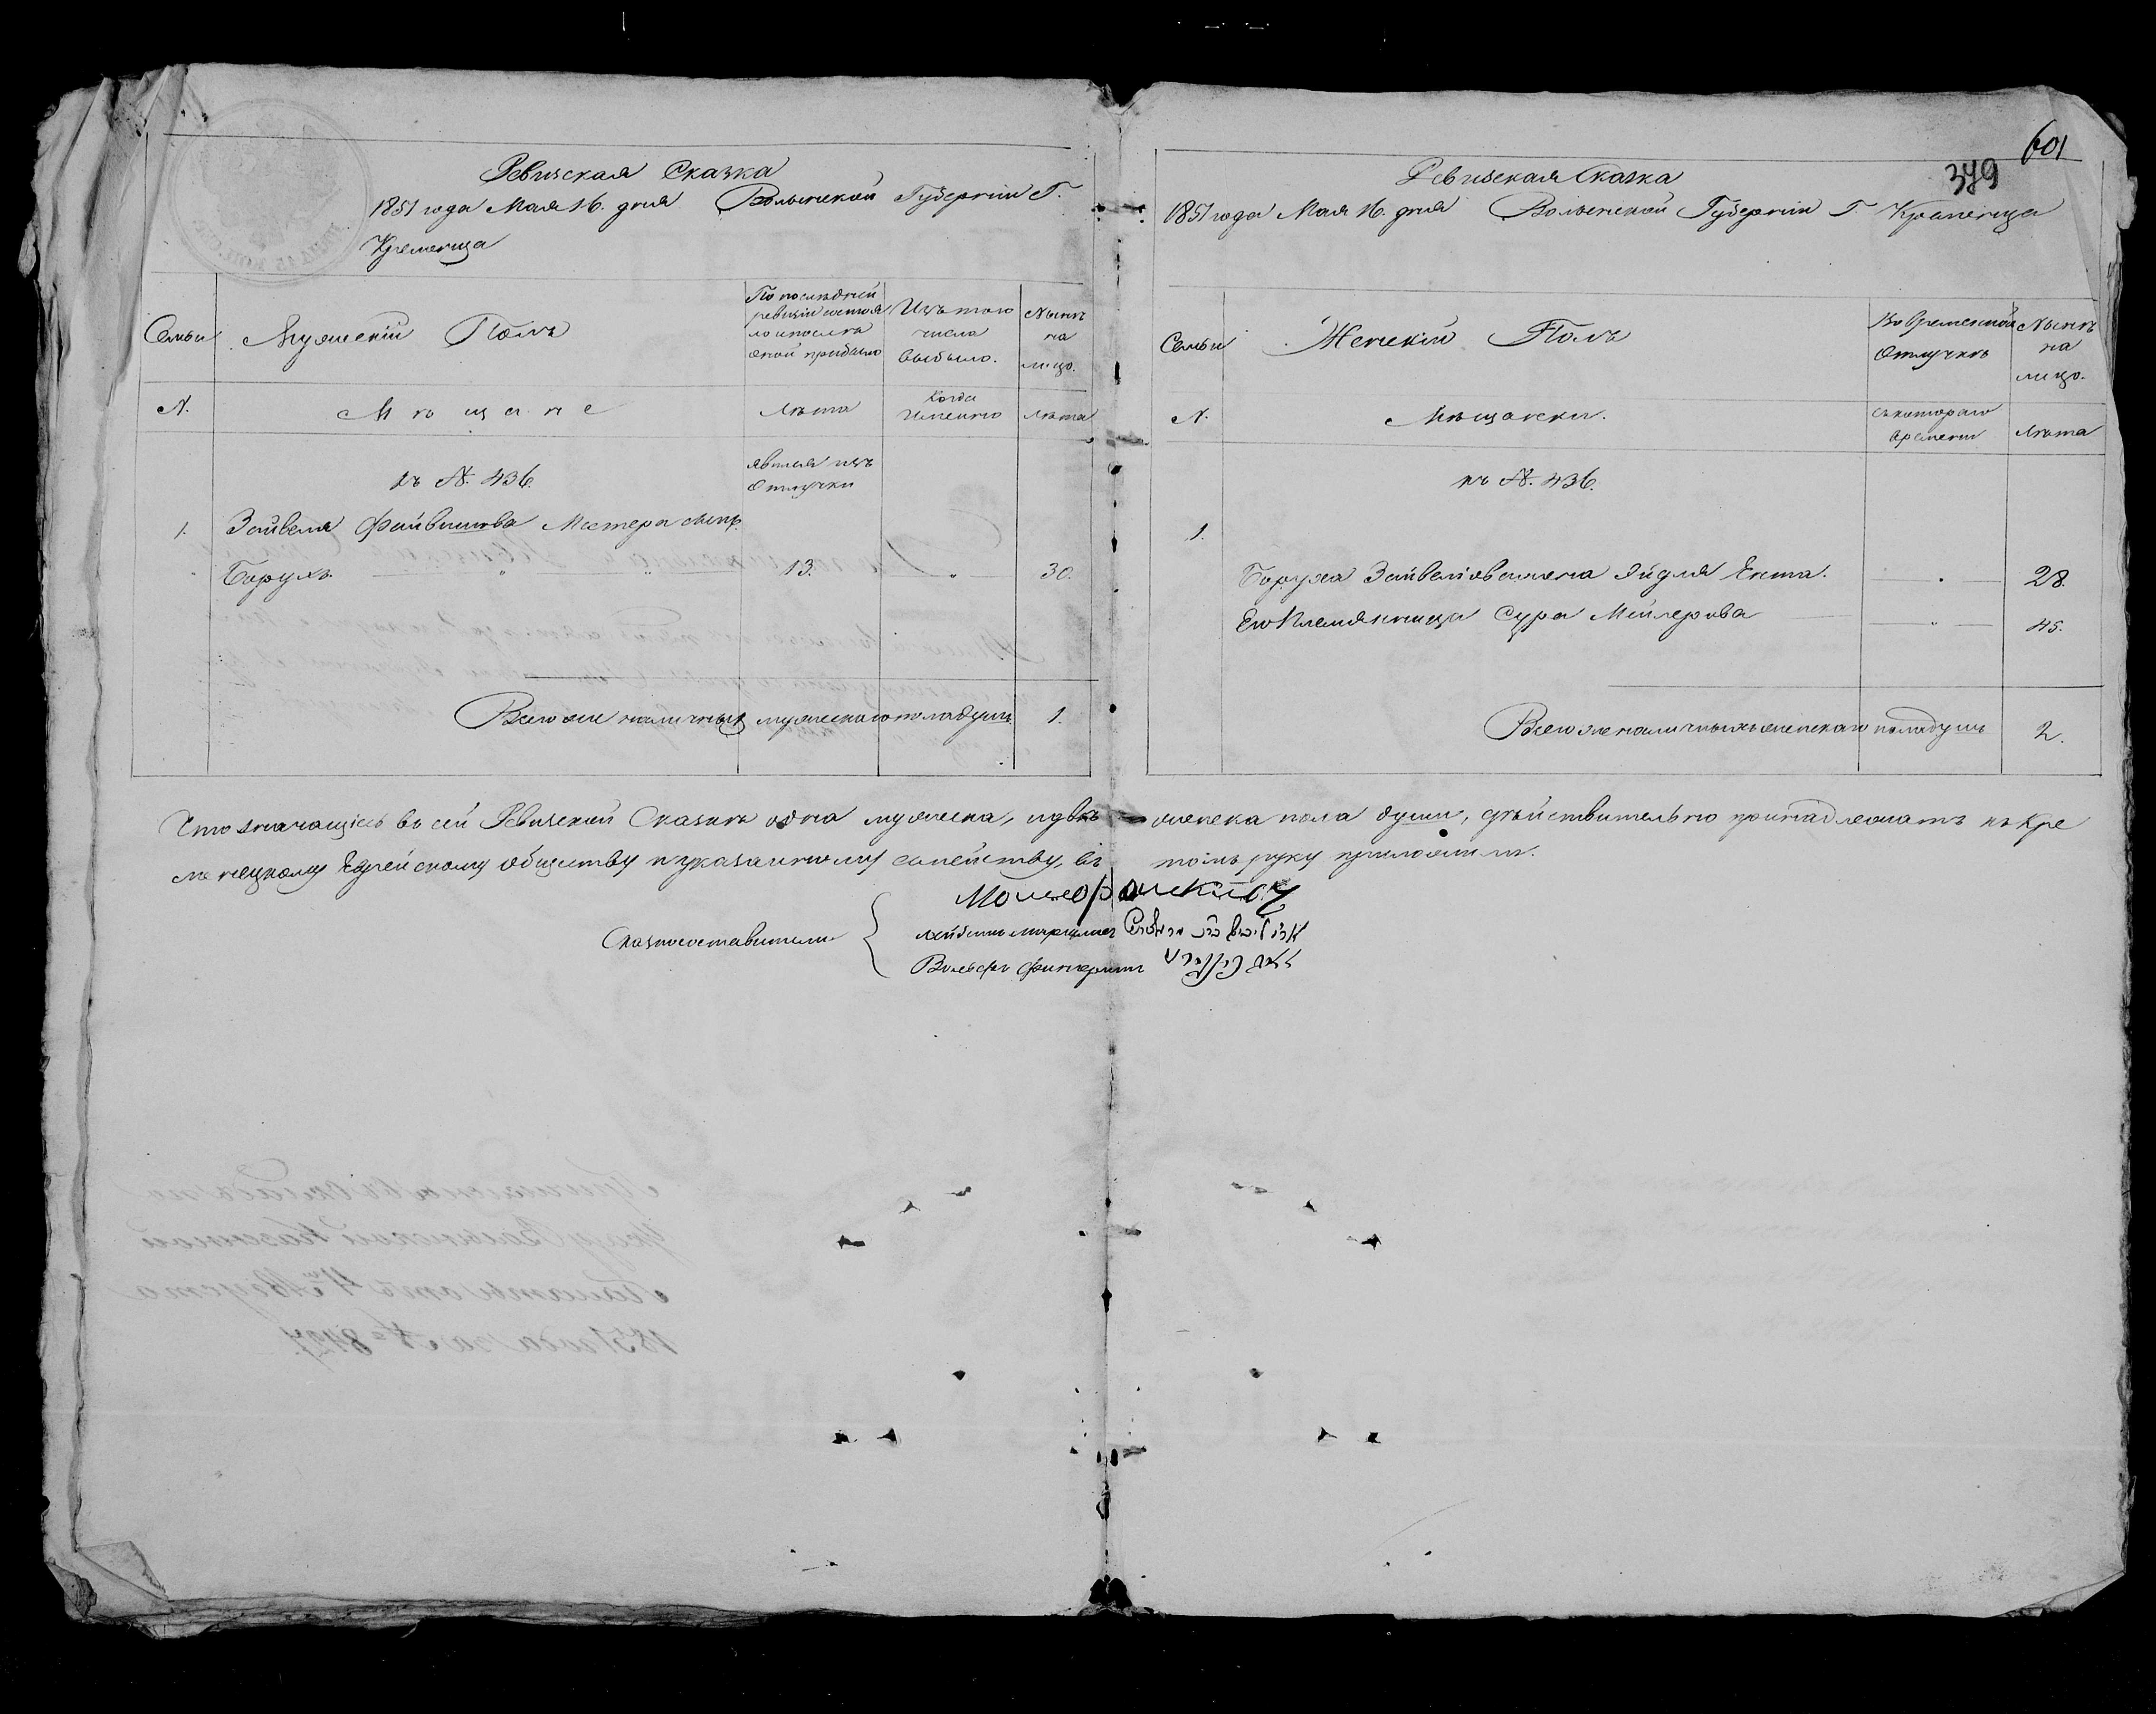 601
379
Ревизская Сказка
1851 года Мая 16. дня Волынской Губернии Г.
Кременца
Семьи
Мужеский Полъ
По последней
ревизіи состоя
ло и после
оной прибыло
Изъ того
числа
выбыло.
Ныне
на
лицо.
N.
Мещане
Лета
Когда
Именно
Лета
къ N. 436.
явился изъ
отлучки
1.
Зайвеля Файвишова Мастера сынъ
Борухъ
13.
30.
Всего же наличныхъ мужескаго пола душъ
1.
Ревизская Сказка
1851 года Мая 16. дня Волынской Губернии Г Кременца
Семьи
Женскій Полъ
Во временной
отлучке
Ныне
на
лицо.
N.
Мещанки.
съ котораго
времени
Лета
къ N. 436.
1.
Боруха Зайвелiова жена Эйдля Ента.
28.
Его Племянница Сура Мейлерова
45.
Всего же наличныхъ женскаго пола душъ
2.
Что значащіесь въ сей Ревизской Сказке одна мужеска, и две женска пола души, действительно принадлежатъ къ Кре
менецкому Еврейскому обществу и указанному семейству, въ томъ руку приложили.
Сказкосоставители
Вольфъ